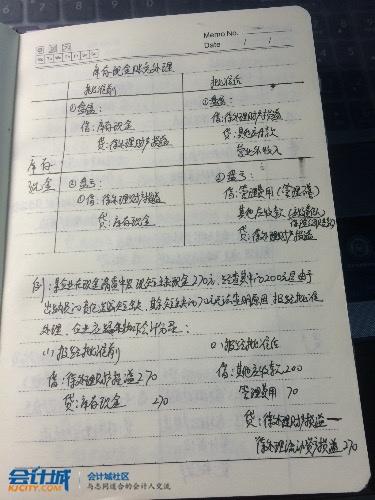 Memo No.
Date / /
库存现金账务处理
批准前
批准后
①盘盈：
借：库存现金
贷：待处理财产损溢
①盘盈：
借：待处理财产损溢
贷：其他应付款
营业外收入
库存
现金
②盘亏：
①借：待处理财产损溢
贷：库存现金
②盘亏：
借：管理费用（管理不善）
其他应收款
贷：待处理财产损溢
例：某企业在现金清查中发现短缺现金270元，经查其中的200元是由于
出纳员的责任造成短缺，其余短缺的70元无法查明原因，报经批准
处理，企业应编制如下会计分录：
(1) 报经批准前
借：待处理财产损溢 270
贷：库存现金 270
(2) 报经批准后
借：其他应收款 200
管理费用 70
贷：待处理财产损溢—
待处理流动资产损溢 270
会计城
KJCITY.COM
会计城社区
与志同道合的会计人交流